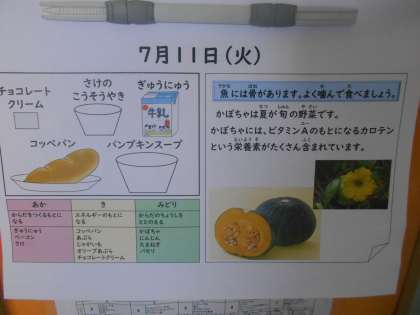 7月11日(火)
チョコレート
クリーム
さけの
こうそうやき
ぎゅうにゅう
牛乳
コッペパン
パンプキンスープ
魚には骨があります。よく噛んで食べましょう。
かぼちゃは夏が旬の野菜です。
かぼちゃには、ビタミンAのもとになるカロテン
という栄養素がたくさん含まれています。
あか
き
みどり
からだをつくるもとに
なる
エネルギーのもとに
なる
からだのちょうしを
ととのえる
ぎゅうにゅう
ベーコン
さけ
コッペパン
あぶら
じゃがいも
オリーブあぶら
チョコレートクリーム
かぼちゃ
にんじん
たまねぎ
パセリ